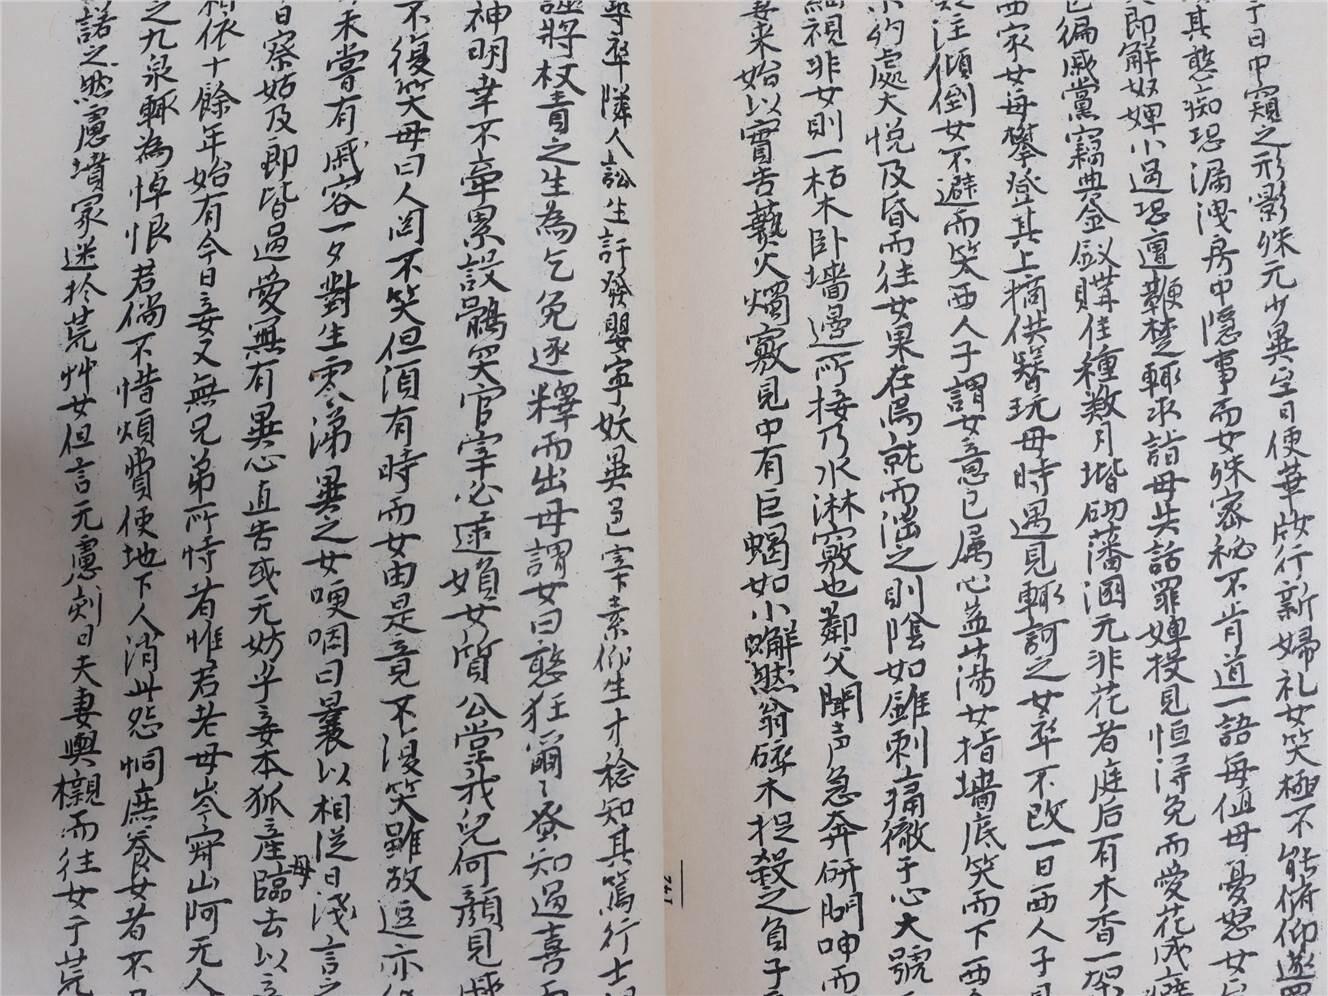 于日中窺之形影殊元少異至日使華妝行新婦礼女笑極不能俯仰遂罷
其憨痴恐漏洩房中隱事而女殊密秘不肯道一語每值母憂怒女
即解奴婢小過恐遭鞭楚輒求詣母共話罪婢投見恒得免而愛花成癖
徧戚黨竊典金釵購佳種数月堦砌藩溷元非花者庭后有木香一架
西家女每攀登其上摘供簪玩母時遇見輒訶之女卒不改一日西人子見
注傾倒女不避而笑西人子謂女意已属心益蕩女指墻底笑而下西
示約處大悦及昏而往女果在焉就而淫之則陰如錐刺痛徹于心大號
細視非女則一枯木卧墻邊所接乃水淋竅也鄰父聞声急奔研問呻而
妻来始以實告爇火燭竅見中有巨蝎如小蠏然翁碎木捉殺之負子
卒隣人訟生訐發嬰寧妖異邑宰素仰生才稔知其篤行士
誣將杖責之生為乞免逐釋而出母謂女曰憨狂爾爾蚤知過喜而
神明幸不牽累設鶻突官宰必逮婦女質公堂我兒何顏見
不復笑母曰人罔不笑但須有時而女由是竟不復笑雖故逗亦
未嘗有戚容一夕對生零涕異之女哽咽曰曩以相從日淺言之
日察姑及郎皆過愛無有異心直告或元妨乎妾本狐產母臨去以
相依十餘年始有今日妾又無兄弟所恃者惟君老母岑寂山阿元人
之九泉輒為悼恨君倘不惜煩費使地下人消此怨恫庶養女者不
諾之然慮墳冢迷於荒艸女但言元慮刻日夫妻輿櫬而往女于荒